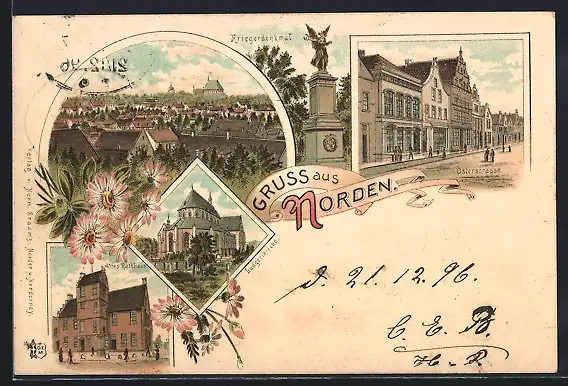 Kriegerdenkmal
Osterstrasse
GRUSS aus
NORDEN.
Ludgerikirche.
Altes Rathhaus
d. 21. 12. 96.
C. E. B.
H. R.
Verlag v. Herm. Braams, Norden u. Norderney